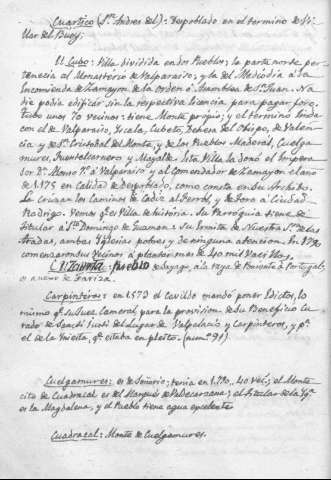 Cuartico (Sn. Andres del): Despoblado en el termino de Vi-
llar del Buey.
El Cubo: Villa dividida en dos Pueblos; la parte norte per-
tenecia al Monasterio de Valparaiso; y la del Mediodia à la
Encomienda de Zamayon de la orden ò Asamblea de Sn. Juan. Na
die podia edificar sin la respectiva licencia, para pagar foro.
Tubo unos 70 vecinos: tiene Monte propio; y el termino linda
con el de Valparaiso, Izcala, Cubeto, Dehesa del Obispo, de Valen-
cia y de Sn. Cristobal del Monte, y de los Pueblos Maderal, Cuelga
mures, Fuentelcarnero y Mayalde. Esta Villa la donó el Empera-
dor Dn. Alonso 7º à Valparaiso y al Comendador de Zamayon el año
de 1.175 en calidad de despoblado, como consta en su Archibo.
La cruzan los Caminos de Cadiz al Ferrol, y de Toro à Ciudad-
Rodrigo. Vemos qe. es Villa de historia. Su Parroquia tiene de
titular à Sto. Domingo de Guzman: su Ermita de Nuestra Sra. de las
Aradas, ambas Iglesias pobres y de ninguna atencion. En 1.790
comenzaron sus Vecinos à plantar mas de 40 mil Bacillos.
pueblo de Sayago, à la raya de Portugal,
es anexo de Fariza.
Carpinteros: en 1.573 el Cavildo mandó poner Edictos, lo
mismo qe. su Juez Cameral, para la provision de su Beneficio Cu-
rado de Sancti Justi del Lugar de Valpelacio y Carpinteros, y pa.
el de la Inierta, qe. estaba en pleito. (num.º 91)
Cuelgamures: es de Señorio; tenia en 1.790.. 40 vecs.; el Monte
cito de Cuadracal es del Marques de Valdecarzana; el titular de la Yga.
es la Magdalena, y el Pueblo tiene agua excelente
Cuadracal: Monte de Cuelgamures.